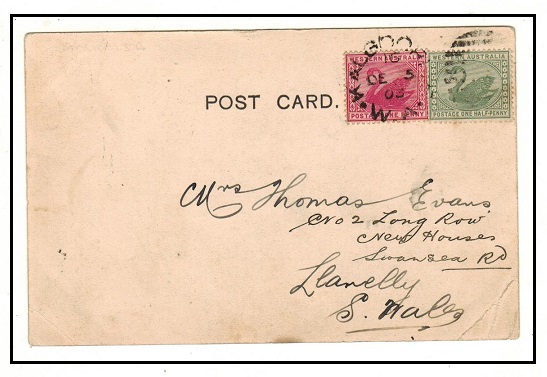 KALGOORLIE
16
DE 5
03
W.A
WESTERN AUSTRALIA
POSTAGE ONE PENNY
WESTERN AUSTRALIA
POSTAGE ONE HALF-PENNY
POST CARD.
Mrs Thomas Evans
No 2 Long Row
New Houses
Swansea Rd
Llanelly
S. Wales